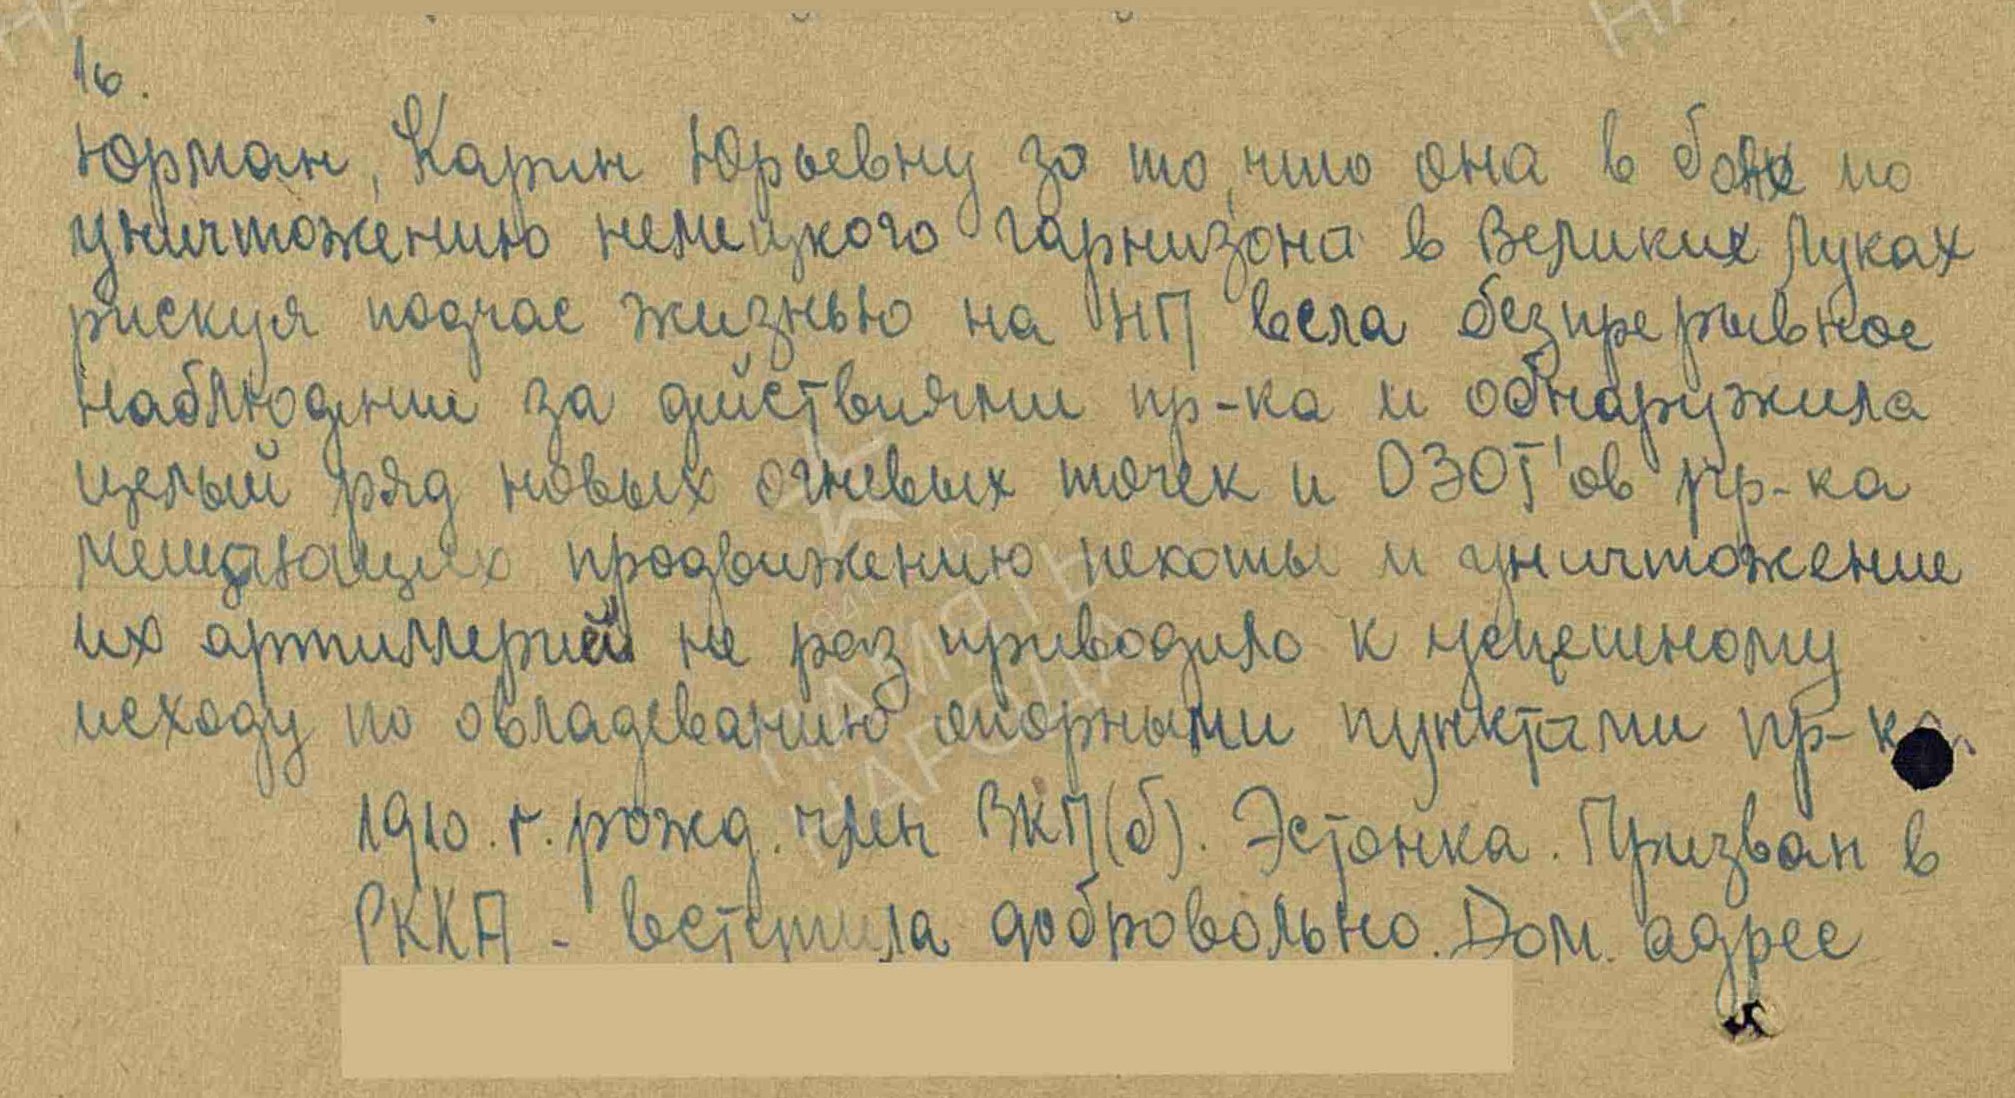 16.
Юрман, Карин Юрьевну за то, что она в боях по
уничтожению немецкого гарнизона в Великих Луках
рискуя подчас жизнью на НП вела безпрерывное
наблюдение за действиями пр-ка и обнаружила
целый ряд новых огневых точек и ДЗОТ'ов пр-ка
мешающих продвижению пехоты и уничтожение
их артиллерией не раз приводило к успешному
исходу по овладеванию опорными пунктами пр-ка.
1910. г. рожд. член ВКП(б). Эстонка. Призван в
РККА - вступила добровольно. Дом. адрес
ПАМЯТЬ
НАРОДА